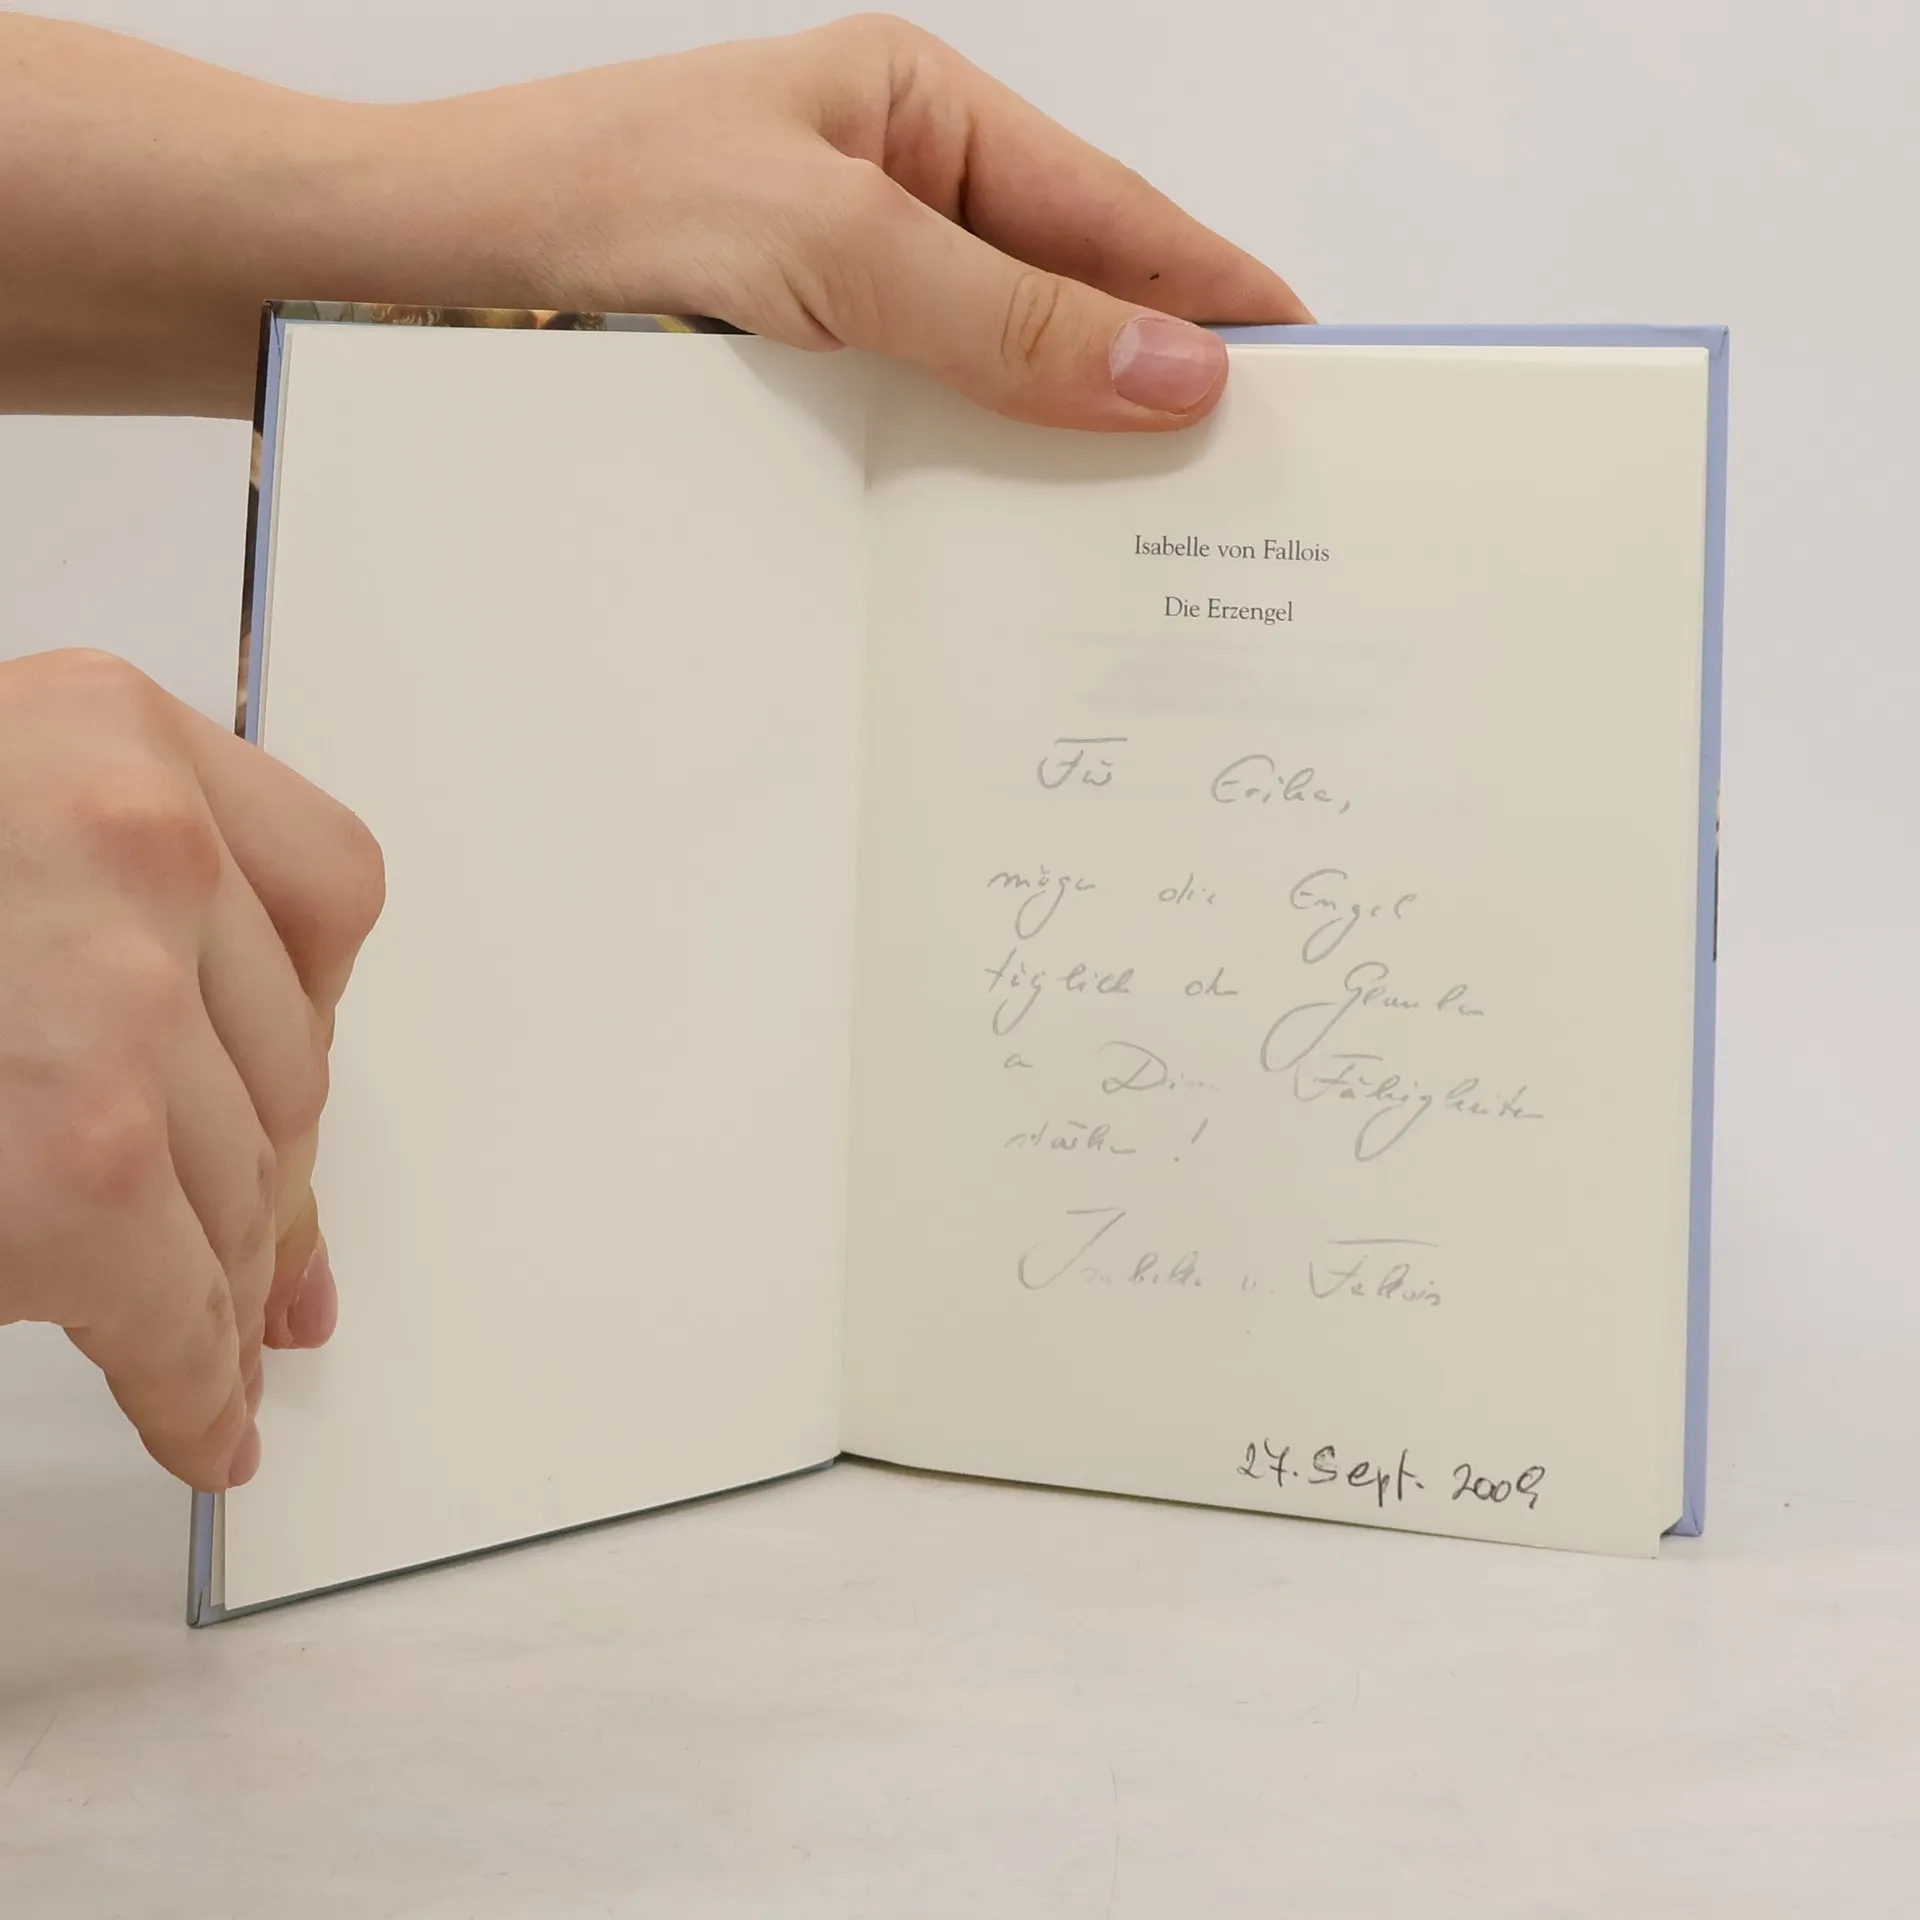 Isabelle von Fallois
Die Erzengel
Für Erika,
möge die Engel
täglich den Glauben
an Deine Fähigkeiten
stärken!
Isabelle v. Fallois
27. Sept. 2009